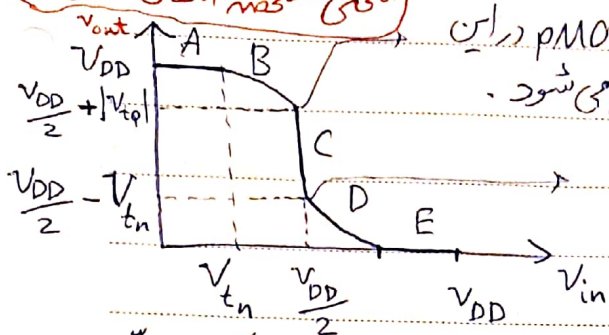 nmos
Vout
A
B
VDD
pMO دراین
می شود .
VDD/2 + |Vtp|
C
VDD/2 - Vtn
D
E
Vtn
VDD/2
VDD
Vin